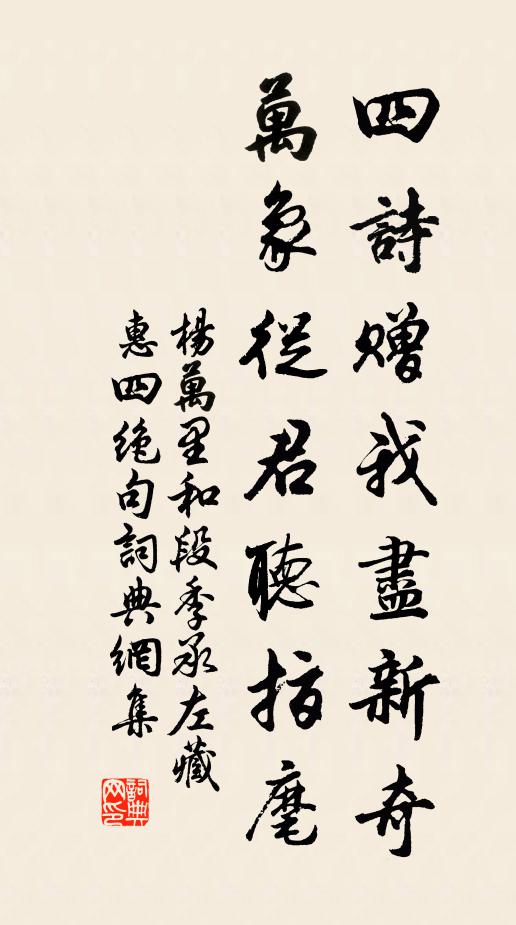 四詩贈我盡新奇
萬象從君聽指麾
楊萬里和段季承左藏
惠四絶句詞典網集
詞典網印